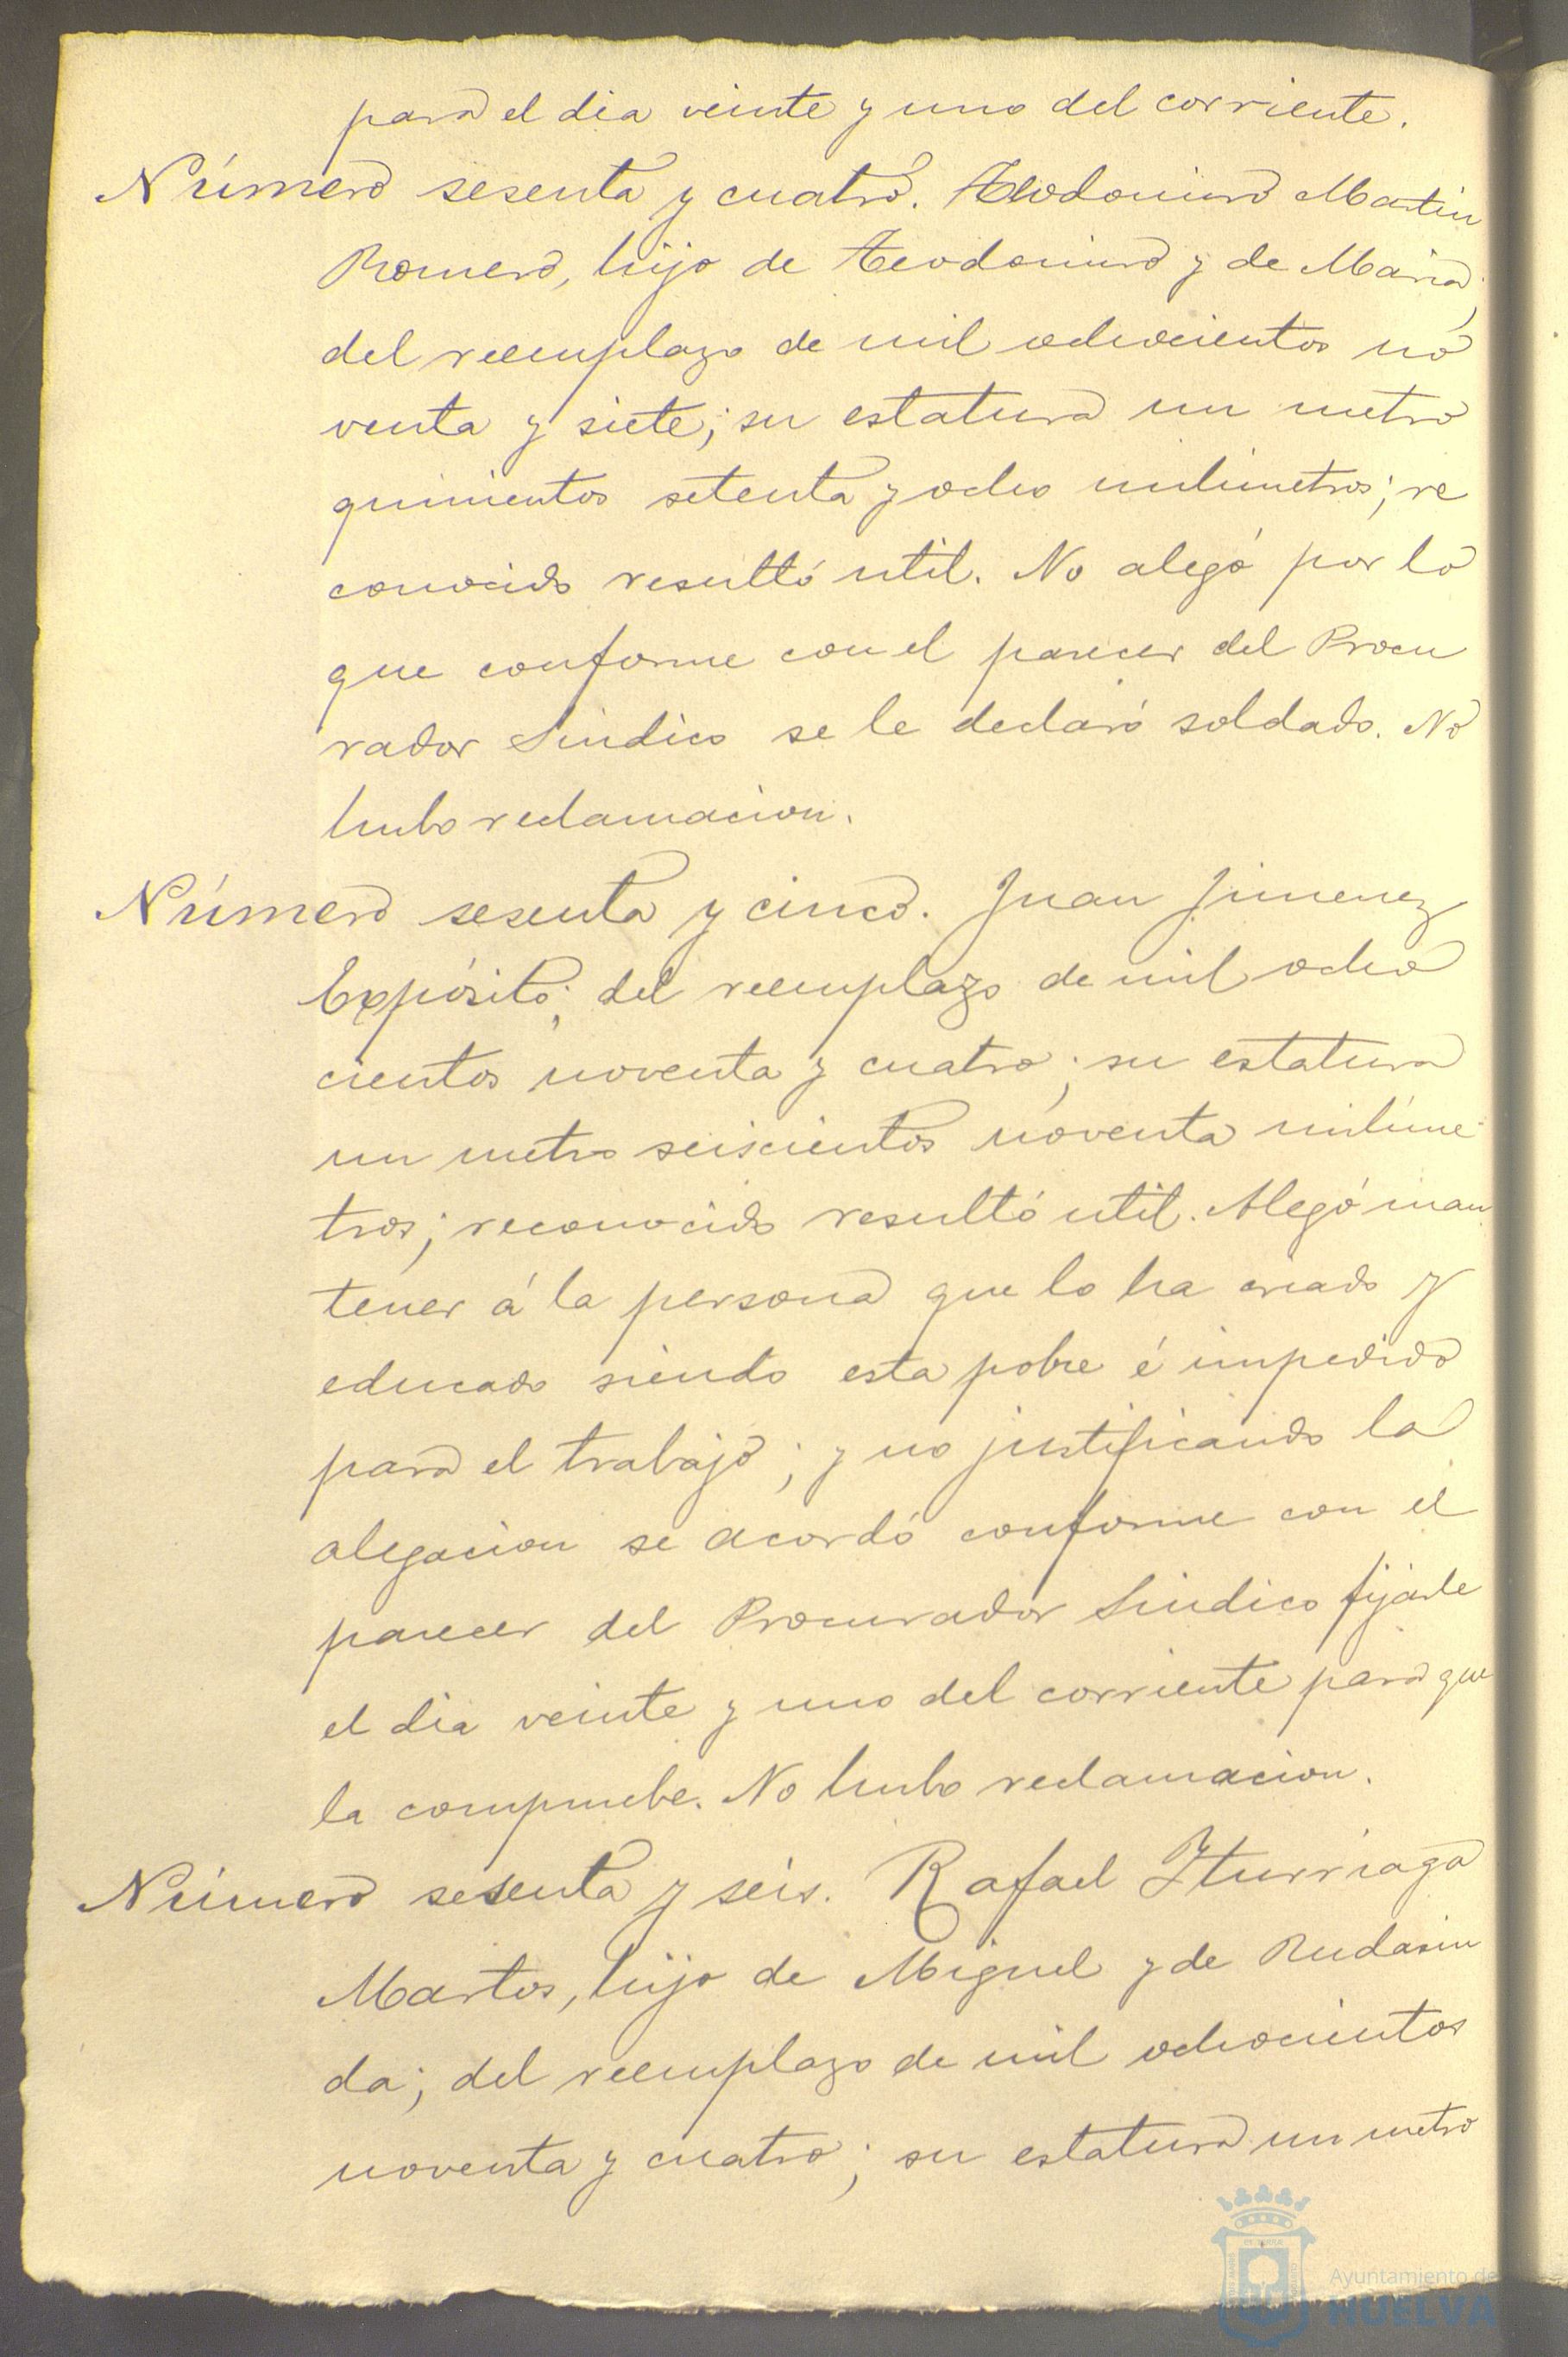 para el dia veinte y uno del corriente.
Número sesenta y cuatro. Teodomiro Martin
Romero, hijo de Teodomiro y de Maria,
del reemplazo de mil ochocientos no
venta y siete; su estatura un metro
quinientos setenta y ocho milimetros; re
conocido resultó util. No alegó por lo
que conforme con el parecer del Procu
rador Sindico se le declaró soldado. No
hubo reclamacion.
Número sesenta y cinco. Juan Jimenez
Expósito; del reemplazo de mil ocho
cientos noventa y cuatro; su estatura
un metro seiscientos noventa milíme
tros; reconocido resultó util. Alegó man
tener á la persona que lo ha criado y
educado siendo esta pobre é impedido
para el trabajo; y no justificando la
alegacion se acordó conforme con el
parecer del Procurador Sindico fijarle
el dia veinte y uno del corriente para que
la compruebe. No hubo reclamacion.
Número sesenta y seis. Rafael Iturriaga
Martos, hijo de Miguel y de Rudasin
da; del reemplazo de mil ochocientos
noventa y cuatro; su estatura un metro
Ayuntamiento de
HUELVA